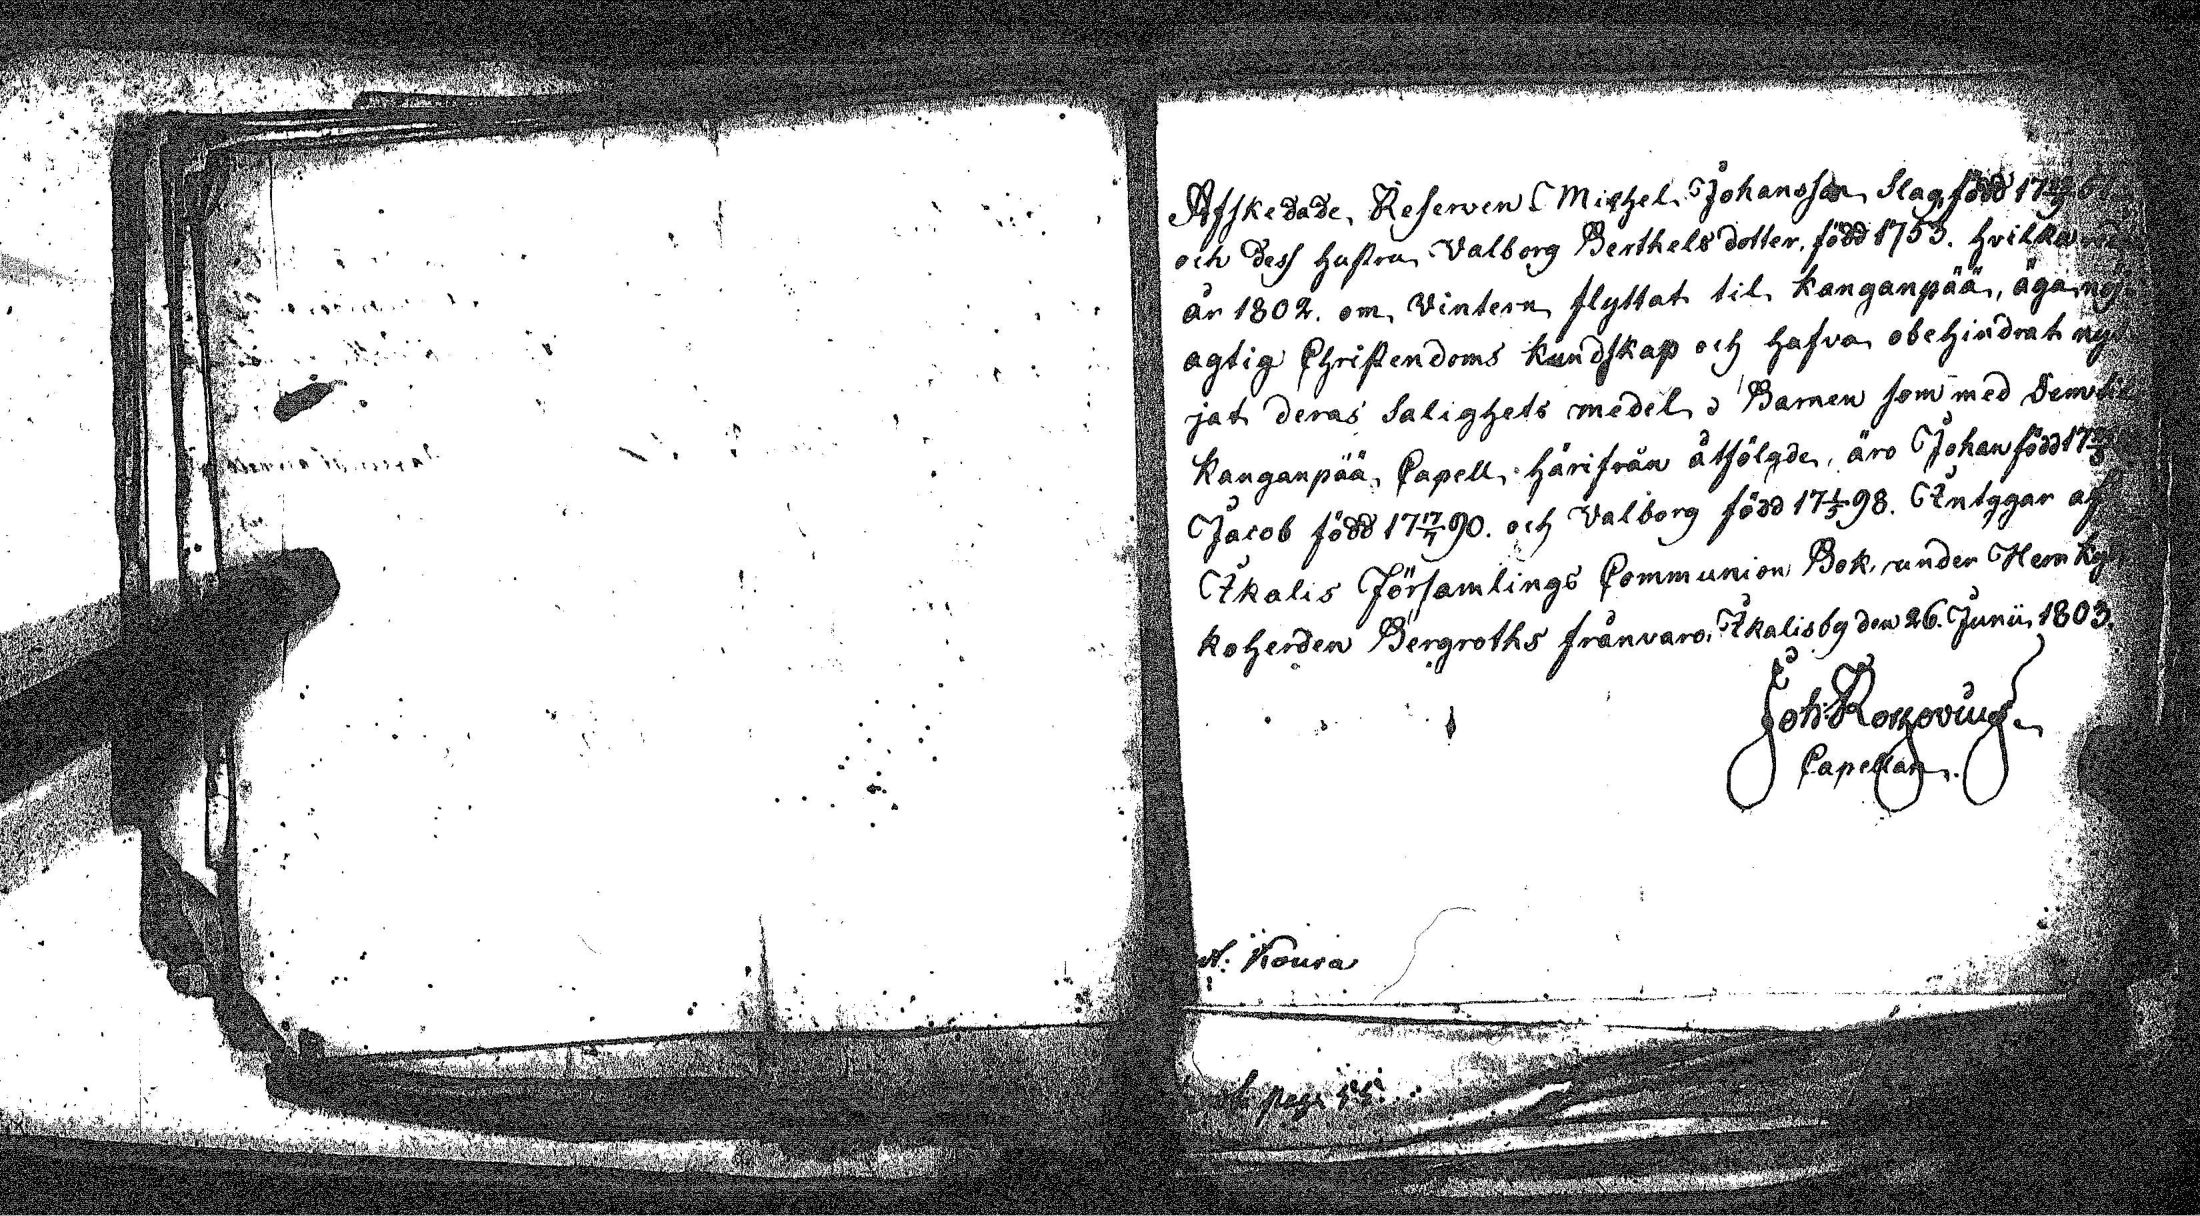 Afskedade Reserven Michel Johansson Slag, född 17
och dess hustru Valborg Berthels dotter, född 1753. hvilka
år 1802. om Vintern flyttat til Kanganpää, äga nöj
agtig Christendoms kundskap och hafva obehindrat nyt
jat deras Salighets medel; Barnen som med dem til
Kanganpää Capell härifrån åtfölgde, äro Johan född 17
Jacob född 17 17/7 90. och Valborg född 17 1/5 98. Intygar af
Ikalis Församlings Communion Bok, under Herr Kyr
koherden Bergroths frånvaro. Ikalisby den 26. Junii 1803.
Joh:
Capellan.
N: Koura
pag: